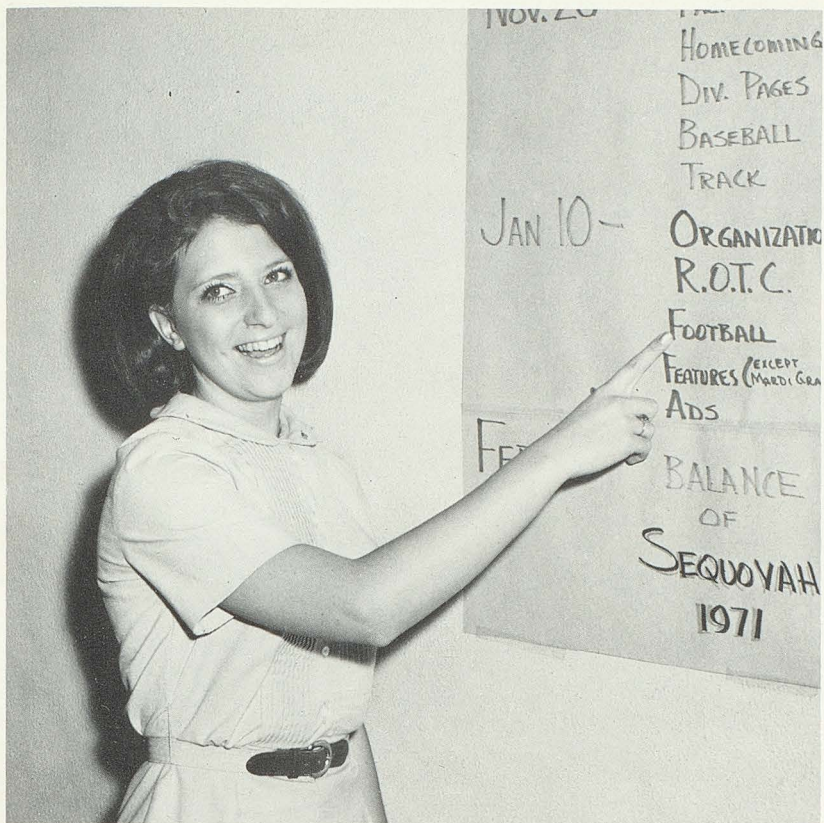 Nov. 20
HOMECOMING
DIV. PAGES
BASEBALL
TRACK
JAN 10 - ORGANIZATIO
R.O.T.C.
FOOTBALL
FEATURES (EXCEPT
MARDI GRA
ADS
BALANCE
OF
SEQUOYAH
1971